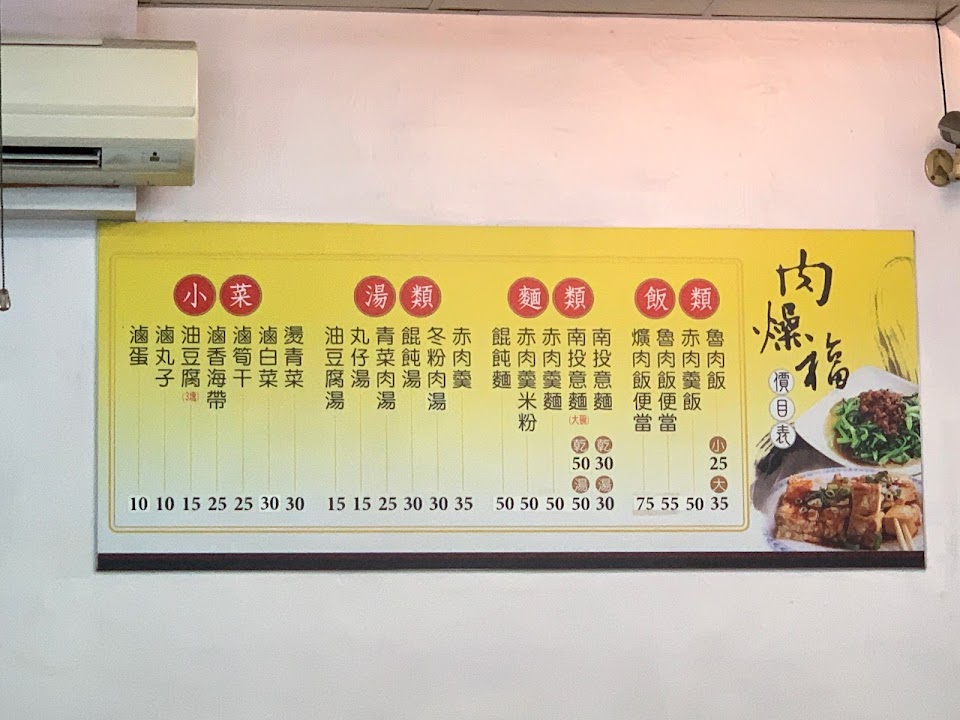 肉燥福
價目表
飯類
魯肉飯 小 25 大 35
赤肉羹飯 50
魯肉飯便當 55
爌肉飯便當 75
麵類
南投意麵 乾 30 湯 30
南投意麵(大碗) 乾 50 湯 50
赤肉羹麵 50
赤肉羹米粉 50
餛飩麵 50
湯類
赤肉羹 35
冬粉肉湯 30
餛飩湯 30
青菜肉湯 25
丸仔湯 15
油豆腐湯 15
小菜
燙青菜 30
滷白菜 30
滷筍干 25
滷香海帶 25
油豆腐(3塊) 15
滷丸子 10
滷蛋 10